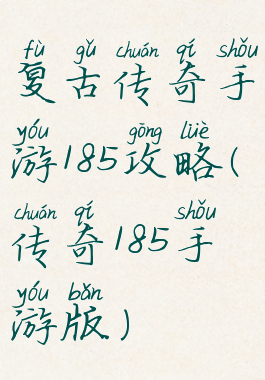 fù gǔ chuán qí shǒu
复古传奇手
yóu gōng lüè
游185攻略(
chuán qí shǒu
传奇185手
yóu bǎn
游版)